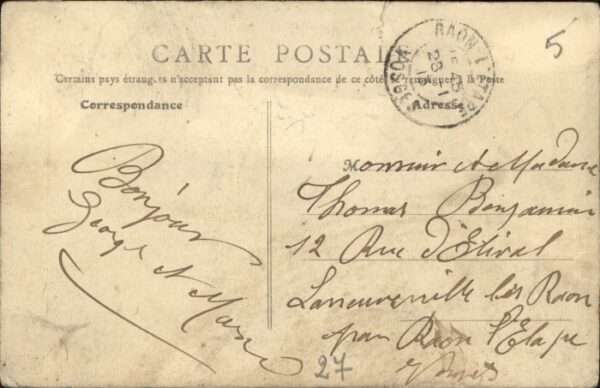 CARTE POSTALE
Certains pays étrangers n'acceptant pas la correspondance de ce côté, se renseigner à la Poste
Correspondance
Adresse
RAON-L'ÉTAPE
VOSGES
5
Bonjour
Georges et Marie
Monsieur et Madame
Thomas Benjamin
12 Rue d'Etival
Laneuveville les Raon
par Raon l'Etape
Vosges
27